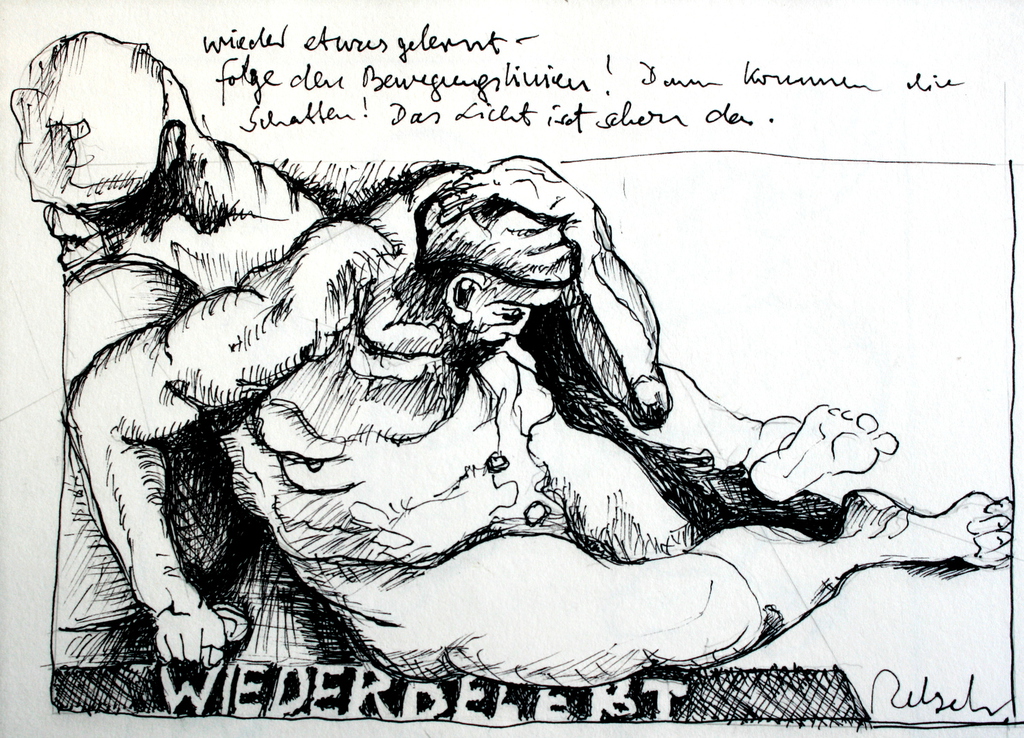 wieder etwas gelernt -
folge den Bewegungslinien! Dann kommen die
Schatten! Das Licht ist schon da.
WIEDERBELEBT